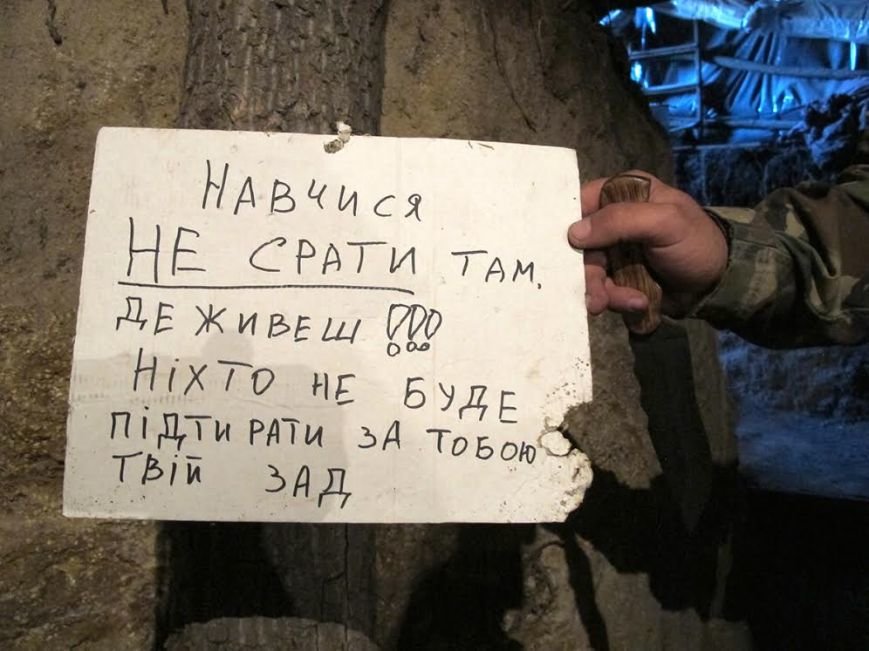 НАВЧИСЯ
НЕ СРАТИ ТАМ,
ДЕ ЖИВЕШ !!!
НІХТО НЕ БУДЕ
ПІДТИРАТИ ЗА ТОБОЮ
ТВІЙ ЗАД